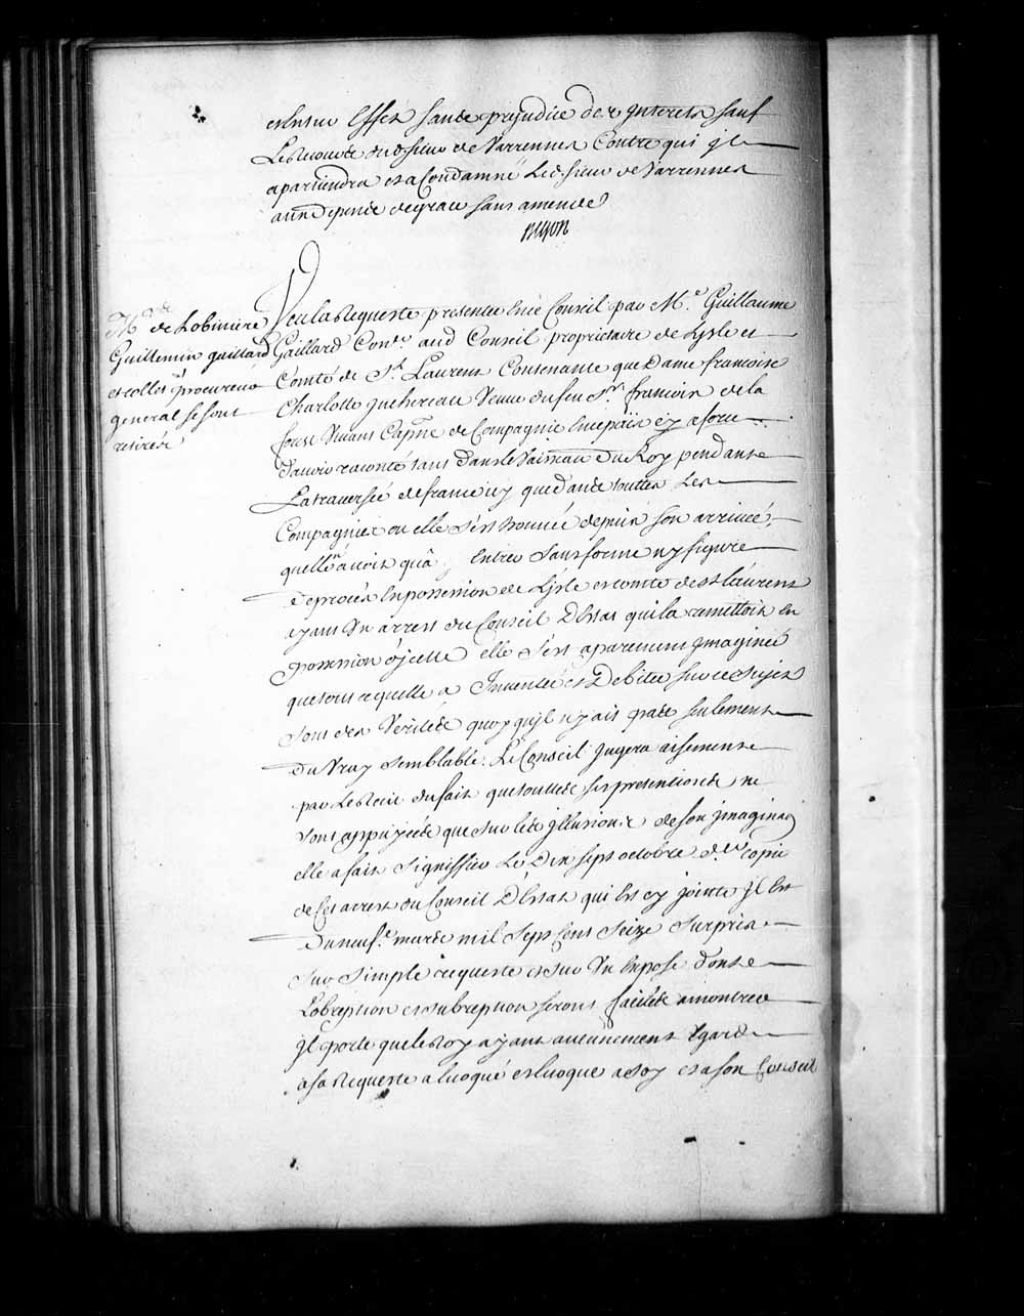 et entier Effet sans prejudice des Interets sauf
Le Recours dud. sieur de Varrennes Contre qui il
apartiendra et a Condamné Led. sieur de Varrennes
aux Depens de grace sans amende
Mrs de Lobiniere
Guillemin guillard
et collet procureur
general se sont
retirés
Veu la Requeste presentee En ce Conseil par Me. Guillaume
Gaillard Coner. aud Conseil proprietaire de Lisle et
Comté de St. Laurens Contenante que Dame francoise
Charlotte Juchereau Veuve du feu Sr. francois de la
forest Vivant Capne. de Compagnie En ce païs cy a force
D'avoir raconté tant dans le Vaisseau Du Roy pendant
La traversée de france icy que dans touttes Les
Compagnies ou elle s'est trouvée depuis son arrivée,
quelle n'avoit qu'a Entrer Sans forme ny figure
De procès En possession de Lisle et comté de St Laurens
ayant Un arrest du Conseil D'Estat qui la remettoit en
possession d'jcelle elle s'est aparemment jmaginée
que tout ce quelle a Inventé et Debitée sur ce Sujet
Sont des Verités quoy qu'il n'y ait pas seulement
Du Vray Semblable. Le Conseil Jugera aisement
par Le Recit du fait que touttes ses pretentions ne
sont appuyées que sur les jllusions de son jmaginaon
elle a fait Signiffier Le Dix sept octobre der. copie
de Cet arrest du Conseil D'Estat qui Est cy jointe jl Est
Du neufe. mars mil Sept Cent Seize Surpris
Sur Simple requeste et sur Un Exposé dont
L'obreption et subreption seront faciles a montrer
Il porte que le Roy ayant aucunement Egard
a sa Requeste a Evoqué et Evoque a Soy et a son Conseil